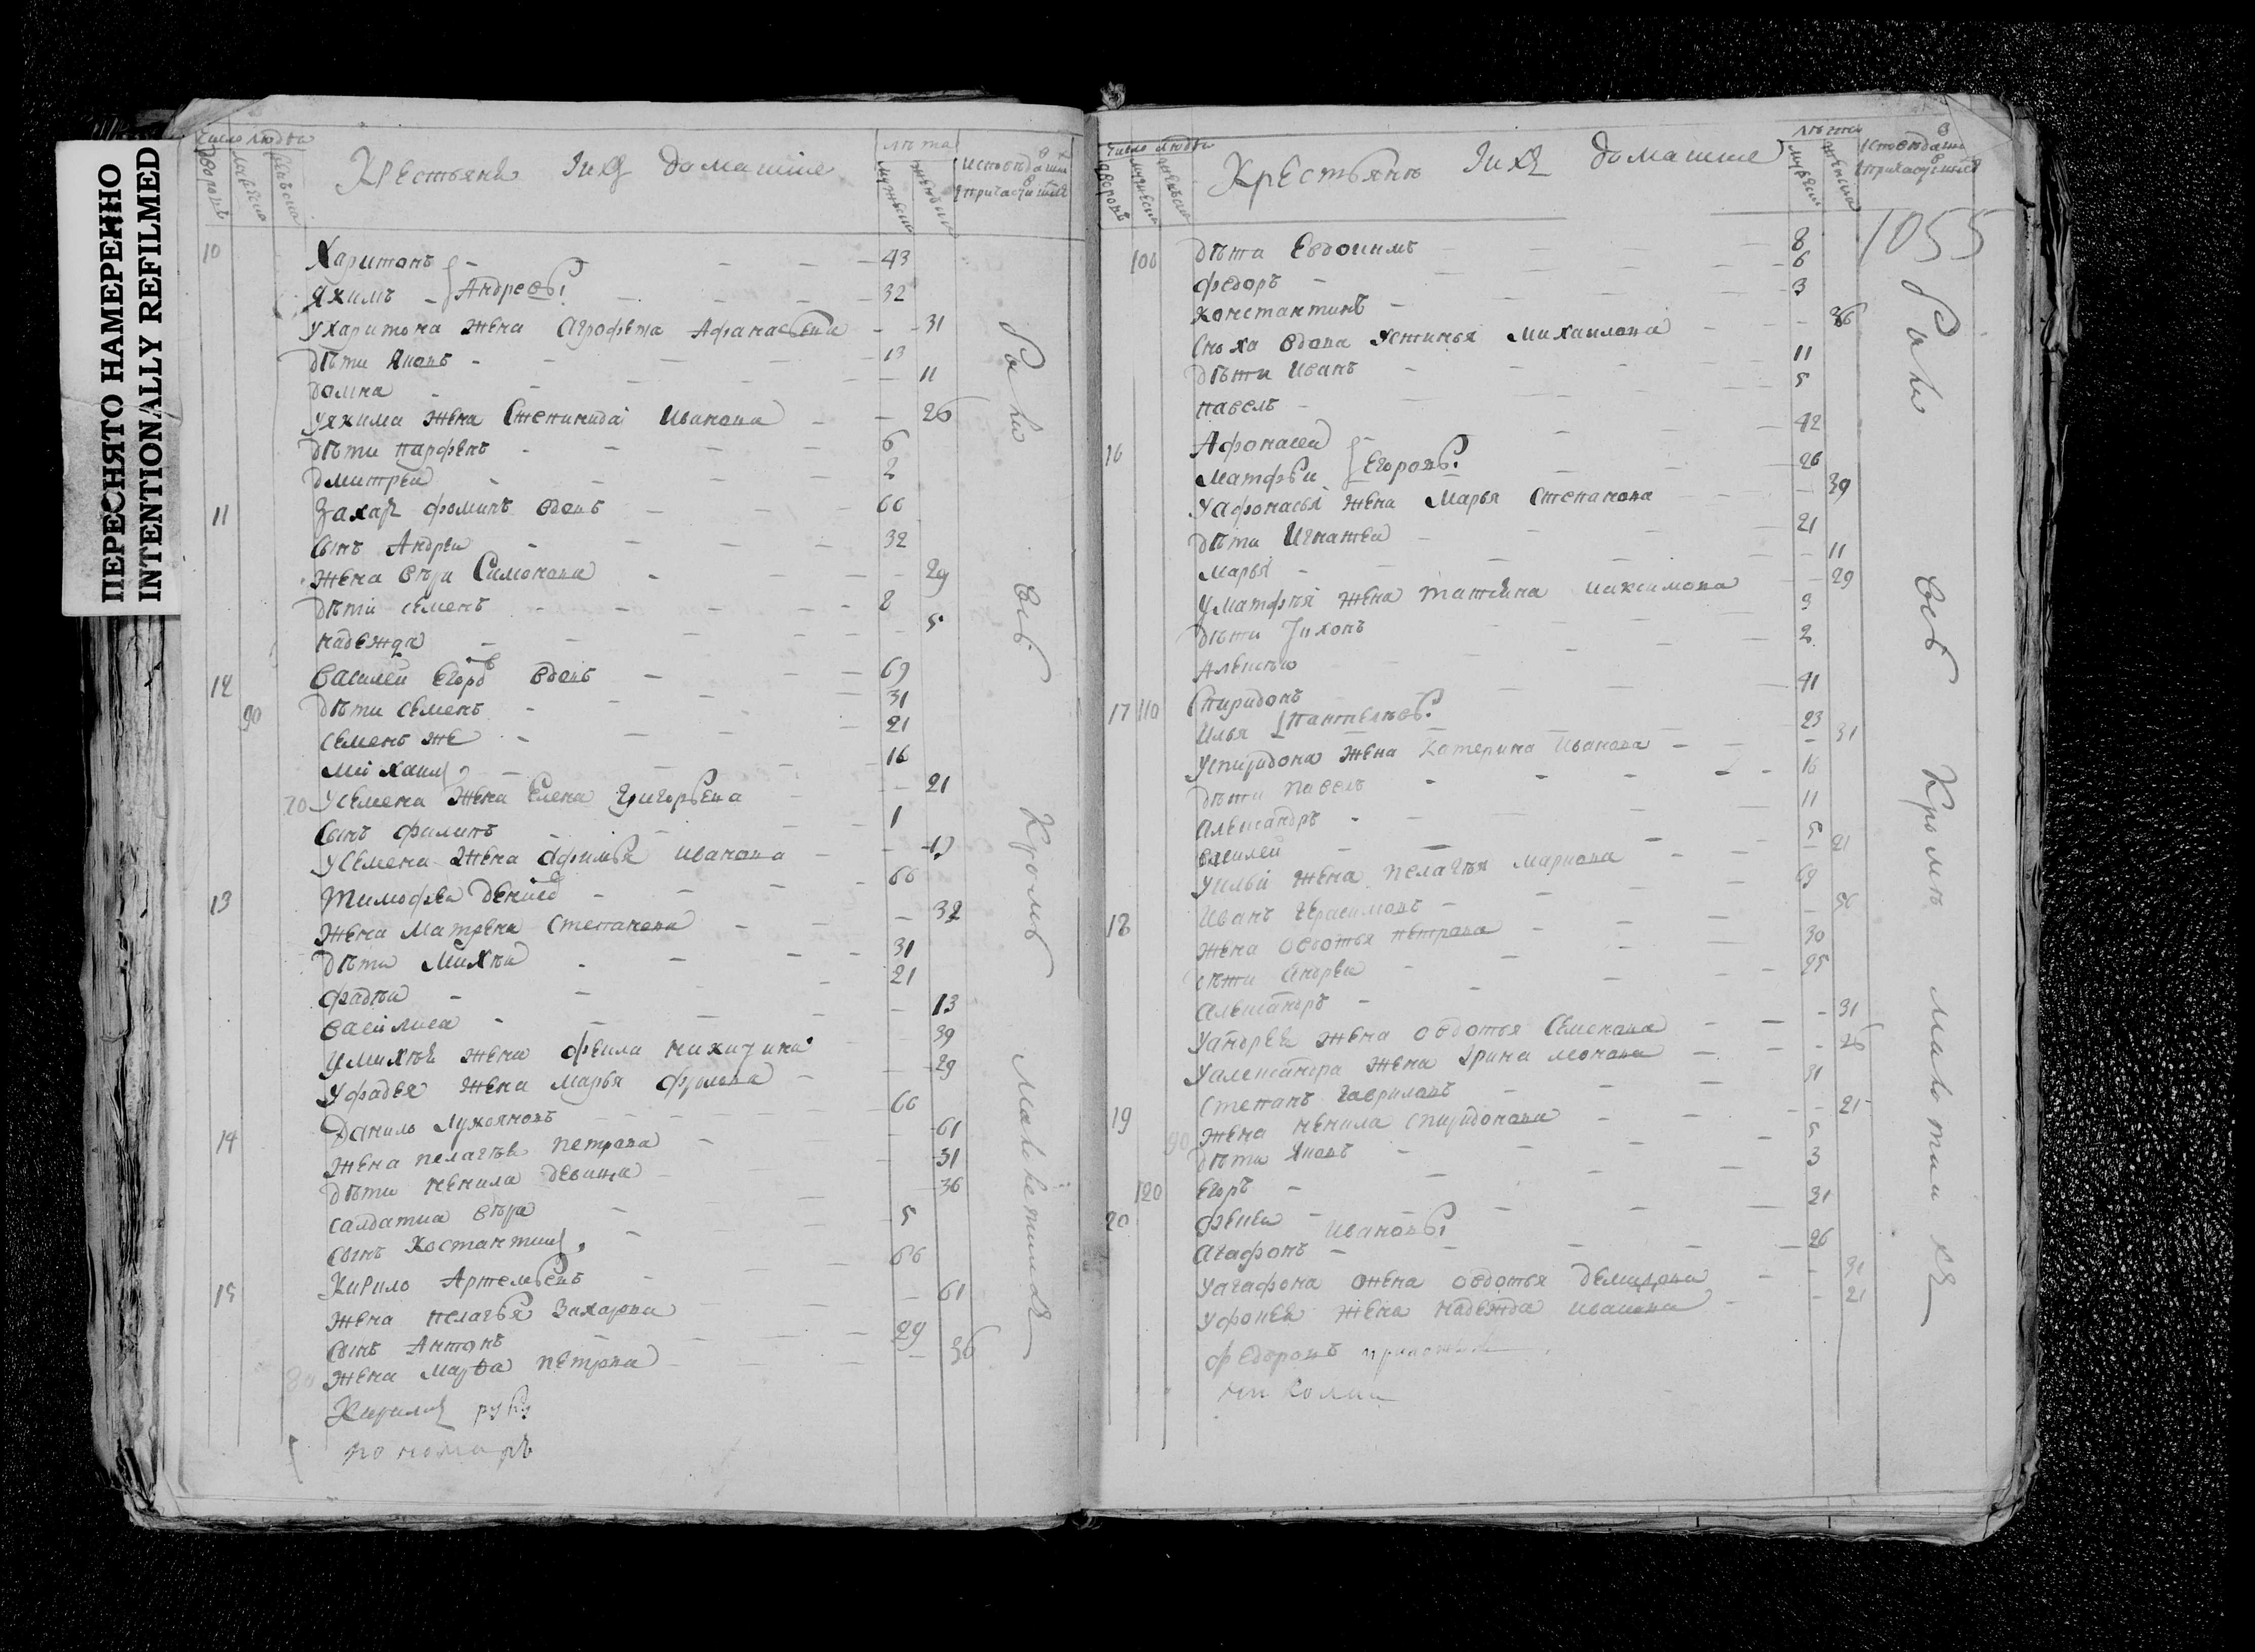 ПЕРЕСНЯТО НАМЕРЕННО
INTENTIONALLY REFILMED
число людѣи
дворовъ
мужеска
женска
Крестьяне и ихъ домашние
лѣта
мужеска
женска
исповѣдашиıся
и причастишися
10 Харитонъ 43
Яхимъ Андреевы 32
У Харитона жена Агрофета Афанасьева 31
Дѣти Яковъ 13
Домна 11
У Яхима жена Степанида Иванова 26
Дѣти Парфенъ 6
Дмитреи 2
11 Захаръ Фоминъ вдовъ 60
Сынъ Андреи 32
Жена Вѣра Симонова 29
Дѣти Семенъ 8
Надежда 5
12 Василеи Егоровъ вдовъ 69
90 Дѣти Семенъ 31
Семенъ же 21
Михаилъ 16
70 У Семена жена Елена Григорьева 21
Сынъ Филипъ 1
У Семена жена Афимья Иванова 19
13 Тимофеи Денисовъ 60
Жена Матрена Степанова 32
Дѣти Михѣи 31
Фадѣи 21
Василиса 13
У Михѣя жена Фекла Никитина 39
У Фадея жена Марья Фролова 29
14 Данило Лукояновъ 66
Жена Пелагѣя Петрова 61
Дѣти Ненила девица 31
Салдатка Вѣра 36
Сынъ Костантинъ 5
15 Кирило Артемьевъ 66
Жена Пелагья Захарова 61
Сынъ Антонъ 29
80 Жена Марфа Петрова 36
Кирилъ руку
пономарь
Всѣ Кромѣ Малолетныхъ
число людѣи
дворовъ
мужеска
женска
Крестьянѣ и ихъ домашние
лѣта
мужеска
женска
исповѣдашися
и причастишися
1055
Дѣти Евдокимъ 8
100 Федоръ 6
Константинъ 3
Сноха вдова Устинья Михаилова 36
Дѣти Иванъ 11
Павелъ 5
16 Афонасеи 42
Матфѣи Егоровы 26
У Афонасья жена Марья Степанова 39
Дѣти Игнатеи 21
Марья 11
У Матфѣя жена Татьяна Максимова 29
Дѣти Тихонъ 3
Алексѣи 2
17 110 Спиридонъ 41
Илья Пантелѣевы 23
У Спиридона жена Катерина Иванова 31
Дѣти Павелъ 16
Александръ 11
Василеи 5
У Ильи жена Пелагѣя Маркова 21
18 Иванъ Герасимовъ 69
Жена Овдотья Петрова 50
Дѣти Андреи 30
Александръ 25
У Андрея жена Овдотья Семенова 31
У Александра жена Ирина Мокова 26
19 Степанъ Гавриловъ 31
90 Жена Ненила Спиридонова 21
Дѣти Яковъ 5
120 Егоръ 3
20 Фокеи Ивановы 31
Агафонъ 26
У Агафона жена Овдотья Демидова 31
У Фокея жена Надежда Иванова 21
Федоровъ приложилъ
Всѣ Кромѣ Малолетныхъ